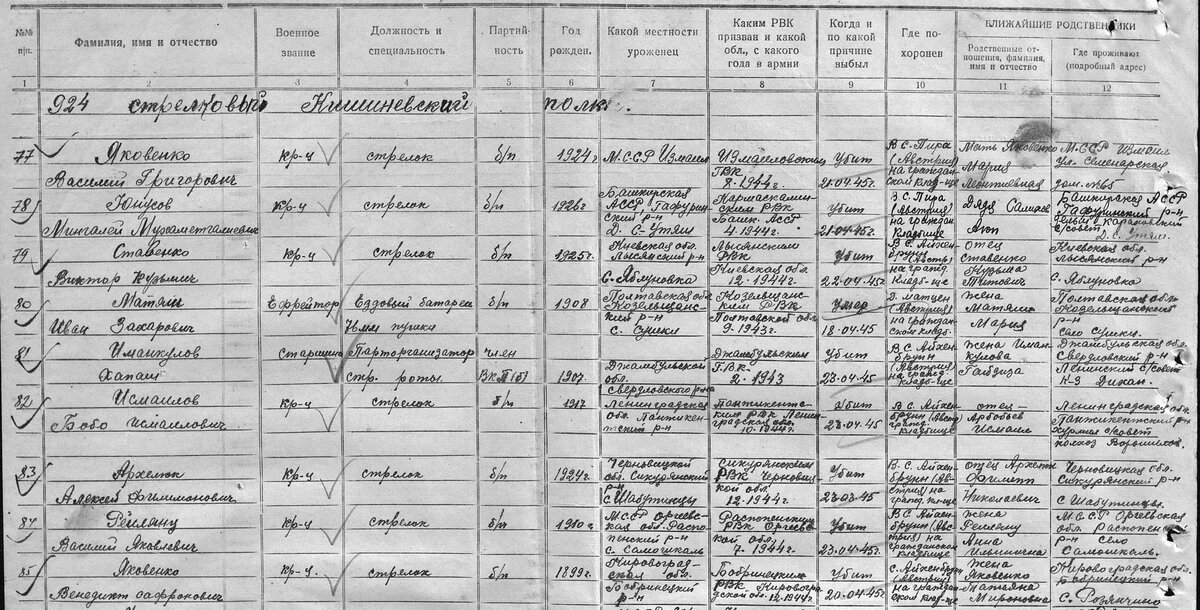 №№ п/п.
Фамилия, имя и отчество
Военное звание
Должность и специальность
Партийность
Год рожден.
Какой местности уроженец
Каким РВК призван и какой обл., с какого года в армии
Когда и по какой причине выбыл
Где похоронен
БЛИЖАЙШИЕ РОДСТВЕННИКИ
Родственные отношения, фамилия, имя и отчество
Где проживают (подробный адрес)
1 2 3 4 5 6 7 8 9 10 11 12
924 стрелковый Кишиневский полк.
77 Яковенко Василий Григорович
Кр-ц стрелок б/п 1924г
М.ССР Измаил
Измаиловским ГВК 8-1944г.
Убит 21.04.45г
В С. Пира (Австрия) на гражданской клад-ще
Мать Яковенко Мария Леонтиевна
М.ССР Измаил ул. Семенарская дом. №65
78 Юнусов Мингалей Мухаметгалиевич
Кр-ц стрелок б/п 1926г
Башкирская АССР, Гафуринский р-н Д. С-Утяш
Кармаскалинским РВК Башк. АССР 4.1944г.
Убит 21.04.45г
В С. Пира (Австрия) на граждан кладбище
Дядя
Башкирская АССР Гафуринский р-н с/совет Д. С. Утяш.
79 Ставенко Виктор Кузьмич
Кр-ц стрелок б/п 1925г
Киевская обл. Лысянский р-н С. Яблуновка
Лысянским РВК Киевская обл. 12-1944г.
Убит 22-04-45г
В С. Айхенбрунн (Австр) на гражд. кладб-ще
отец ставенко Кузьма Титович
Киевская обл. Лысянский р-н С. Яблуновка
80 Матяш Иван Захарович
Ефрейтор Ездовый батареи 45мм пушки б/п 1908
Полтавская обл Козельщанский р-н с. Сушки
Козельщанским РВК Полтавской обл. 9-1943г.
Умер 18-04-45г
Д. матцен (Австрия) на гражданском кладб.
жена Матяш Мария
Полтавская обл Козельщанский р-н село Сушки.
81 Иманкулов Хапаш
старшина Парторганизатор стр. роты. член ВКП(б) 1907
Джамбульская обл. Свердловского р-на
Джамбульским ГВК. 2-1943
Убит 23-04-45г
В С. Айхенбрунн (Австрия) на гражд. кладб-ще
Жена Иманкулова
Джамбульская обл Свердловский р-н Ленинский с/совет К-з Дихан.
82 Исмаилов Бобо Исмаилович
Кр-ц стрелок б/п 1917
Ленинградская обл. Пантикентский р-н
Пантикентским РВК Ленинградская обл. 10-1944г.
Убит 23-04.45
В С. Айхенбрунн (Авст) гражд. кладбище
отец – Арбобаев Исмаил
Ленинградская обл. Пантжикентский р-н с/совет колхоз Ворошилов.
83 Архелюк Алексей Филимонович
Кр-ц стрелок б/п 1924г
Черновицкой обл. Сикурянский р-н С Шабутинцы
Сикурянским РВК Черновицкой обл. 12-1944г
Убит 23-03-45
В С. Айхенбрунн (Австрия) на гражд. кл-ще
отец Архелюк Филипп Николаевич
Черновицкая обл. Сикурянский р-н с Шабутинцы.
84 Рейляну Василий Яковлевич
Кр-ц стрелок б/п 1910г
МССР Оргеевская обл. Распопенский р-н с. Самошкаль
Распопенским РВК Оргеевской обл. 7-1944г.
Убит 23-04.45г
В С Айхенбрунн (Австрия) на гражданском кладбище
Жена Рейляну Анна Ильинична
М.ССР Оргеевская обл. Распопенский р-н село Самошкаль.
85 Яковенко Венедикт Сафронович
Кр-ц. стрелок б/п 1899г
Кировоградская обл. Бобринецкий р-н
Бобринецким РВК Кировоград. обл. 12-1944г
Убит 20-04.45г
с. Айхенбрунн (Австрия) на граждан. клад-ще
жена Яковенко Татьяна Мироновна
Кировоградская обл. Бобринецкий р-н С.